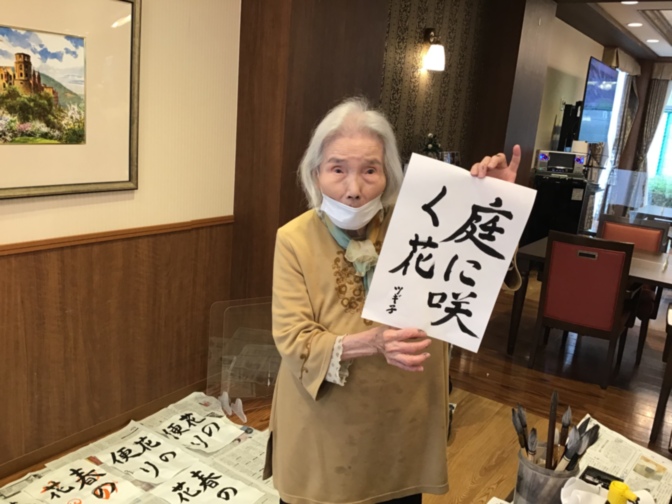 庭に咲
く花
ツギ子
花の
便り
花の
便り
春の
花
春の
花